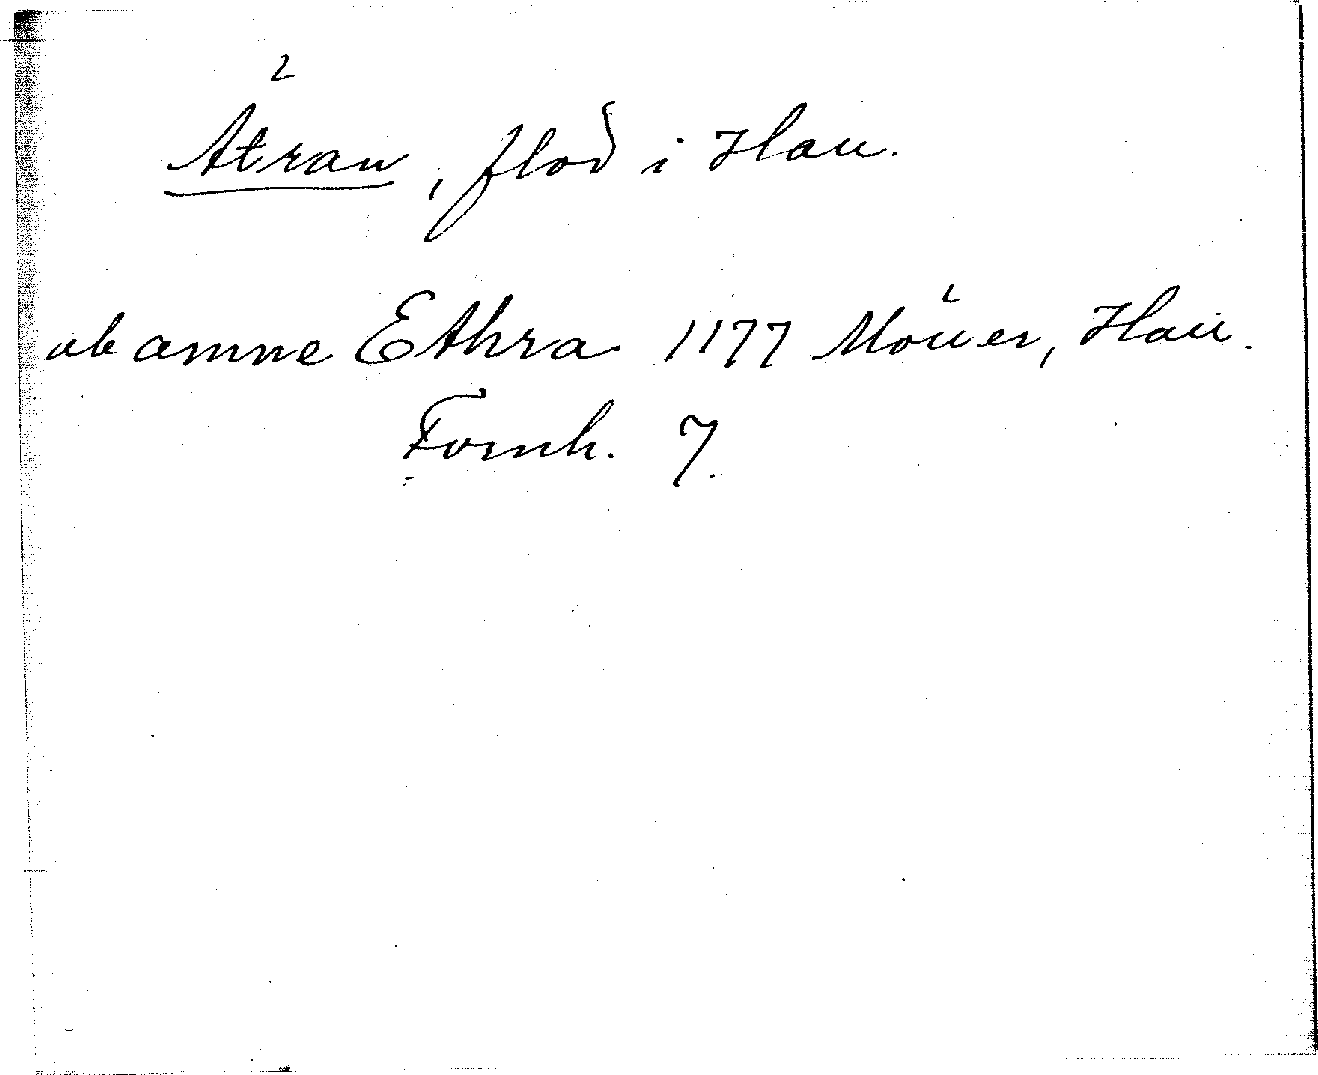 Ätran, flod i Hall.
ab amne Ethra 1177 Möller, Hall.
Fornh. 7.